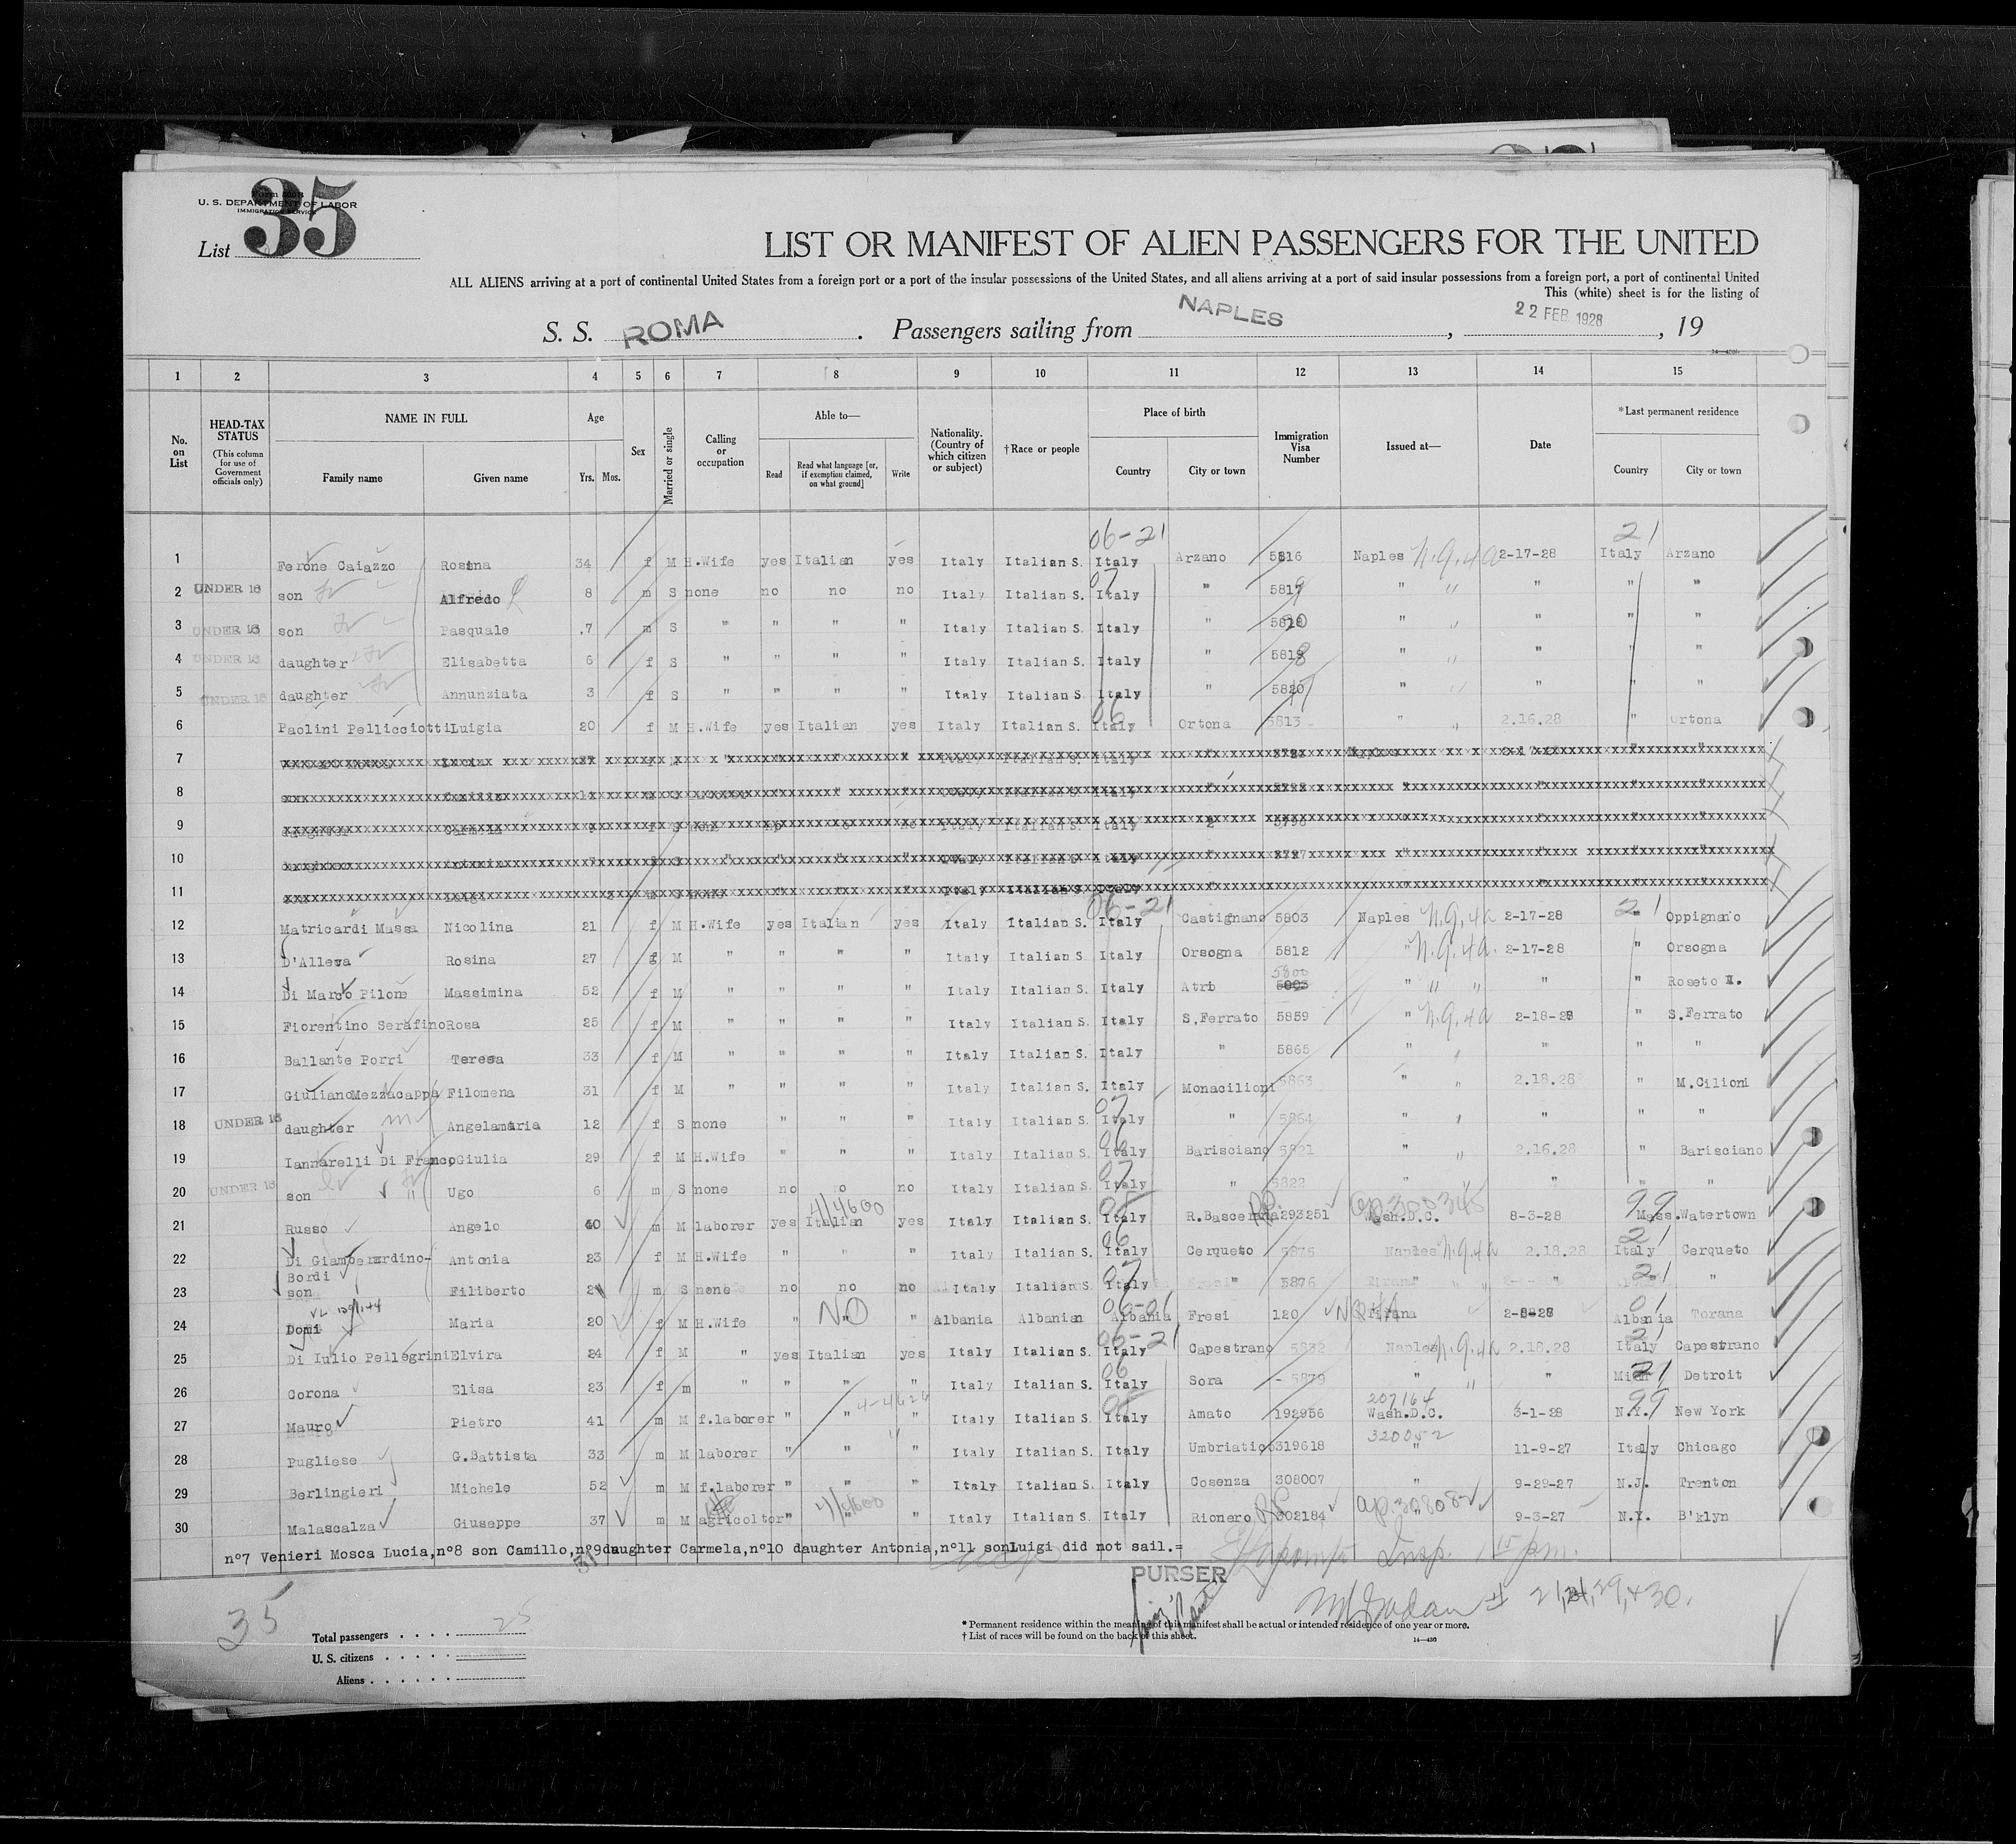 35
U. S. DEPARTMENT OF LABOR
IMMIGRATION SERVICE
List
LIST OR MANIFEST OF ALIEN PASSENGERS FOR THE UNITED
ALL ALIENS arriving at a port of continental United States from a foreign port or a port of the insular possessions of the United States, and all aliens arriving at a port of said insular possessions from a foreign port, a port of continental United
This (white) sheet is for the listing of
S. S. ROMA. Passengers sailing from NAPLES, 22 FEB 1928, 19
1 2 3 4 5 6 7 8 9 10 11 12 13 14 15
No. on List
HEAD-TAX STATUS (This column for use of Government officials only)
NAME IN FULL
Family name Given name
Age
Yrs. Mos.
Sex
Married or single
Calling or occupation
Able to—
Read
Read what language [or, if exemption claimed, on what ground]
Write
Nationality. (Country of which citizen or subject)
†Race or people
Place of birth
Country City or town
Immigration Visa Number
Issued at—
Date
*Last permanent residence
Country City or town
06-21 21
1 Ferone Caiazzo Rosina 34 f M H.Wife yes Italian yes Italy Italian S. Italy Arzano 5816 Naples N.Q.4a 2-17-28 Italy Arzano
2 UNDER 16 son Alfredo 8 m S none no no no Italy Italian S. Italy " 5819 " " " " "
3 UNDER 16 son Pasquale 7 m S " " " " Italy Italian S. Italy " 5820 " " " " "
4 UNDER 16 daughter Elisabetta 6 f S " " " " Italy Italian S. Italy " 5818 " " " " "
5 UNDER 16 daughter Annunziata 3 f S " " " " Italy Italian S. Italy " 5817 " " " " "
6 Paolini Pellicciotti Luigia 20 f M H.Wife yes Italian yes Italy Italian S. Italy Ortona 5813 " " 2.16.28 " Ortona
7
8
9
10
11
12 Matricardi Massa Nicolina 21 f M H.Wife yes Italian yes Italy Italian S. Italy Castignano 5803 Naples N.Q.4a 2-17-28 " Oppignano
13 D'Alleva Rosina 27 f M " " " " Italy Italian S. Italy Orsogna 5812 " N.Q.4a. 2-17-28 " Orsogna
14 Di Marco Pilone Massimina 52 f M " " " " Italy Italian S. Italy Atri 5800 " " " " " Roseto
15 Fiorentino Serafino Rosa 25 f M " " " " Italy Italian S. Italy S.Ferrato 5859 " N.Q.4a 2-18-28 " S.Ferrato
16 Ballante Porri Teresa 33 f M " " " " Italy Italian S. Italy " 5865 " " " " "
17 Giuliano Mezzacappa Filomena 31 f M " " " " Italy Italian S. Italy Monacilioni 5863 " " 2.18.28 " M.Cilioni
18 UNDER 16 daughter Angelamaria 12 f S none " " " Italy Italian S. Italy " 5864 " " " " "
19 Iannarelli Di Franco Giulia 29 f M H.Wife " " " Italy Italian S. Italy Barisciano 5821 " " 2.16.28 " Barisciano
20 UNDER 16 son " Ugo 6 m S none no no no Italy Italian S. Italy " 5822 " " " " "
21 Russo Angelo 40 m M laborer yes Italian yes Italy Italian S. Italy R.Bascerana 293251 Wash.D.C. 8-3-28 Mass. Watertown
22 Di Giamberardino-Bordi Antonia 23 f M H.Wife " " " Italy Italian S. Italy Cerqueto 5875 Naples N.Q.4a 2.18.28 Italy Cerqueto
23 son Filiberto 2 m S none no no no Italy Italian S. Italy " 5876 " " " " "
24 Domi Maria 20 f M H.Wife " NO " Albania Albanian Albania Fresi 120 Tirana 2-8-28 Albania Torana
25 Di Iulio Pellegrini Elvira 24 f M " yes Italian yes Italy Italian S. Italy Capestrano 5832 Naples N.Q.4a 2.18.28 Italy Capestrano
26 Corona Elisa 23 f m " " " " Italy Italian S. Italy Sora 5879 " " " Mich Detroit
27 Mauro Pietro 41 m M f.laborer " " " Italy Italian S. Italy Amato 192956 207164 Wash.D.C. 3-1-28 N.Y. New York
28 Pugliese G.Battista 33 m M laborer " " " Italy Italian S. Italy Umbriatico 319618 320052 " 11-9-27 Italy Chicago
29 Berlingieri Michele 52 m M f.laborer " " " Italy Italian S. Italy Cosenza 308007 " 9-29-27 N.J. Trenton
30 Malascalza Giuseppe 37 m M agricoltor " " " Italy Italian S. Italy Rionero 302184 " 9-3-27 N.Y. B'klyn
n°7 Venieri Mosca Lucia,n°8 son Camillo,n°9 daughter Carmela,n°10 daughter Antonia,n°11 son Luigi did not sail.=
PURSER
35
Total passengers . . . . 25
U. S. citizens . . . . .
Aliens . . . . . .
* Permanent residence within the meaning of this manifest shall be actual or intended residence of one year or more.
† List of races will be found on the back of this sheet.
14—430